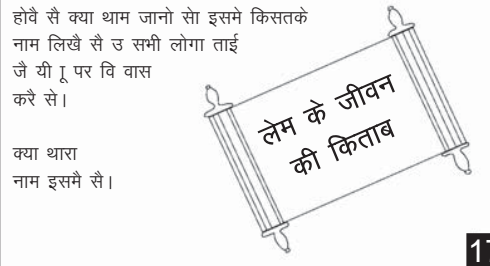 होवै सै क्या थाम जानो सेा इसमे किसतके
नाम लिखै सै उ सभी लोगा ताई
जै यी ाू पर वि वास
करै से।
क्या थारा
नाम इसमै सै।
लेम के जीवन
की किताब